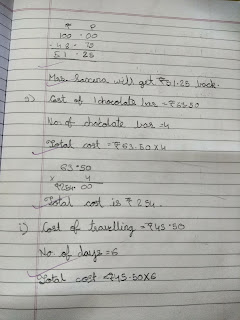 ₹ P
100 . 00
- 48 . 75
51 . 25
Mrs. Saxena will get ₹51.25 back.
Cost of 1 chocolate bar = ₹63.50
No. of chocolate bar = 4
Total cost = ₹63.50 x 4
63.50
x 4
₹254.00
Total cost is ₹254.
i) Cost of travelling = ₹45.50
No. of days = 6
Total cost = ₹45.50X6